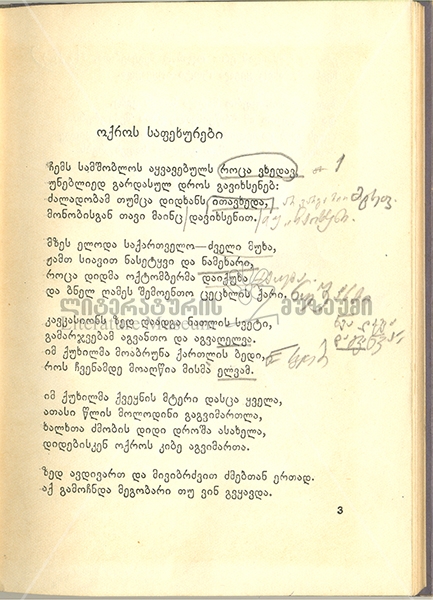 ოქროს საფეხურები
ჩემს სამშობლოს აყვავებულს როცა ვხედავ, 1
უნებლიედ გარდასულ დროს გავიხსენებ:
ძალადობამ თუმცა დიდხანს ითავხედა,
მონობისგან თავი მაინც დავიხსენით.
მზეს ელოდა საქართველო—ძველი მუხა,
ჟამთ სიავით ნასეტყვი და ნამეხარი,
როცა დიდმა ოქტომბერმა დაიქუხა
და ბნელ ღამეს შემოენთო ცეცხლის ქარი,
ლიტერატურის მუზეუმი
კავკასიონს ზედ დაადგა ნათლის სვეტი,
გამარჯვებამ აგვანთო და აგვაღელვა.
იმ ქუხილმა მოაბრუნა ქართლის ბედი,
როს ჩვენამდე მოაღწია მისმა ელვამ.
იმ ქუხილმა ქვეყნის მტერი დასცა ყველა,
ათასი წლის მოლოდინი გაგვიმართლა,
ხალხთა ძმობის დიდი დროშა ასახელა,
დიდებისკენ ოქროს კიბე აგვიმართა.
ზედ ავდივართ და მივიბრძვით ძმებთან ერთად.
აქ გამოჩნდა მეგობარი თუ ვინ გვყავდა.
3